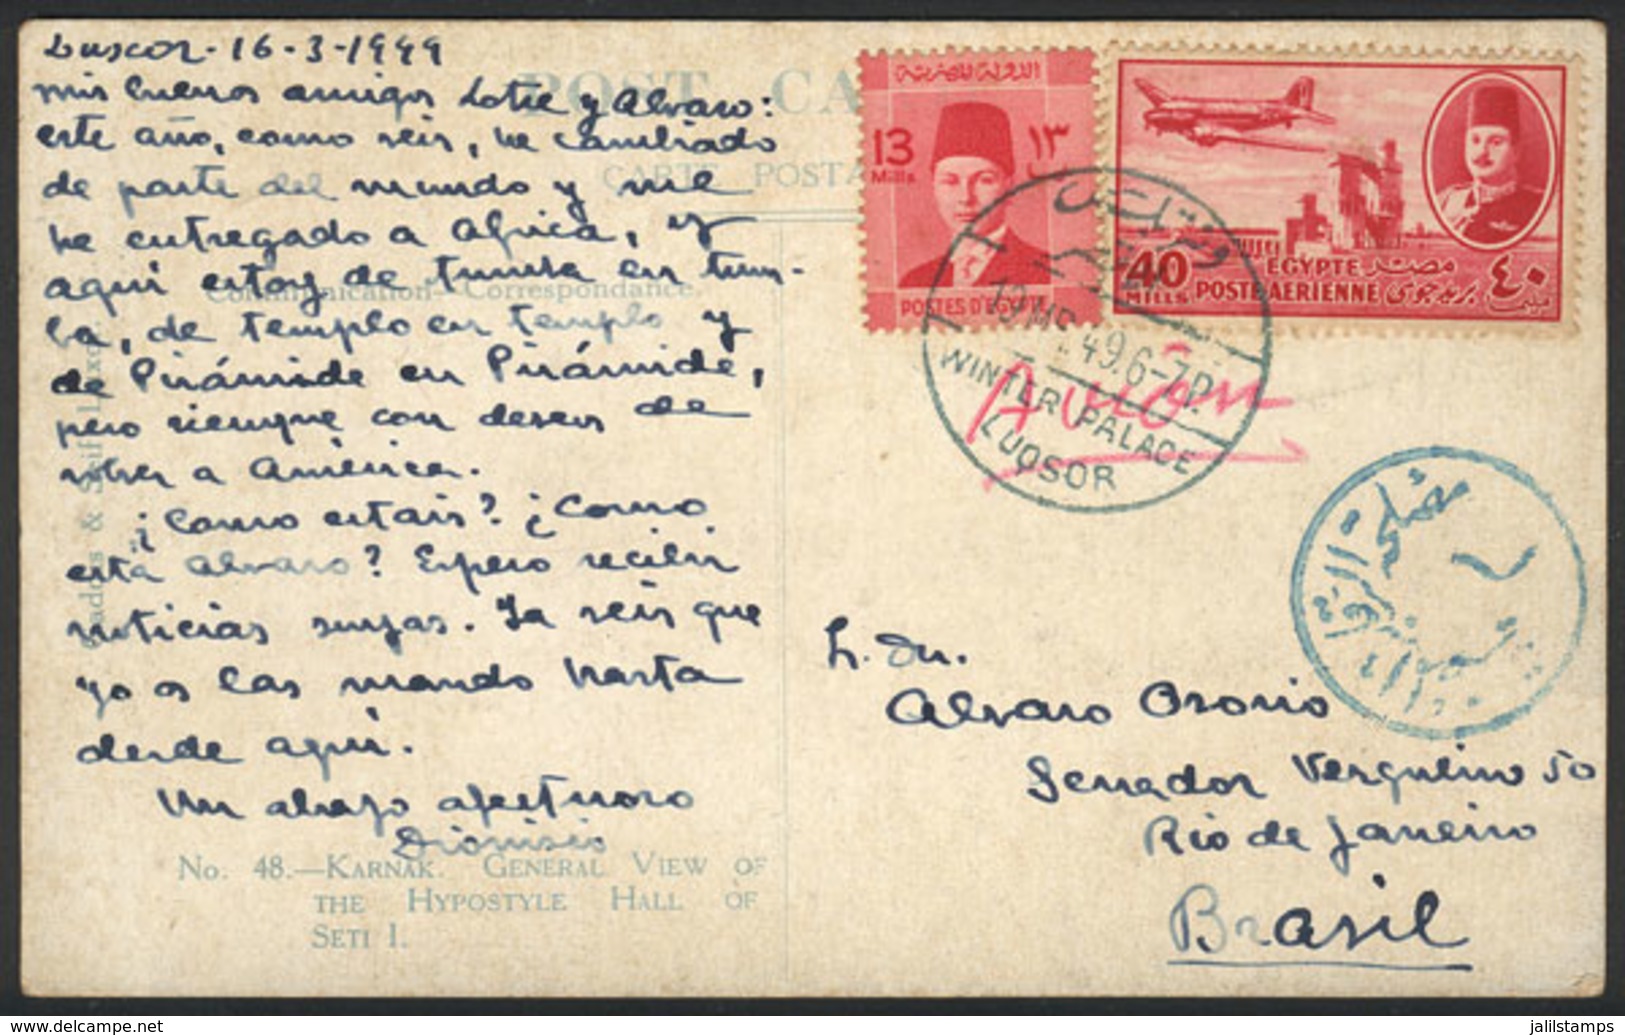 Luxor - 16-3-1949
mis buenos amigos Lotte y Alvaro:
este año, como veis, he cambiado
de parte del mundo y me
he entregado a Africa, y
aquí estoy de tumba en tum-
ba, de templo en templo y
de Pirámide en Pirámide,
pero siempre con deseos de
volver a América.
¿Como estais? ¿Como
está Alvaro? Espero recibir
noticias suyas. Ya veis que
yo os las mando hasta
desde aquí.
Un abrazo afectuoso
Dionisio
POST CA
CARTE POSTA
Communication—Correspondance.
No. 48.—KARNAK. GENERAL VIEW OF
THE HYPOSTYLE HALL OF
SETI I.
الدولة المصرية
13
Mills
١٣
POSTES D'EGYPTE
40
MILLS
EGYPTE مصر
POSTE AERIENNE بريد جوى
٤٠
مليم
49.6-7P.
WINTER PALACE
LUQSOR
Avión
Alvaro Osorio
Senador Vergueiro 50
Rio de Janeiro
Brasil
jalilstamps
www.delcampe.net